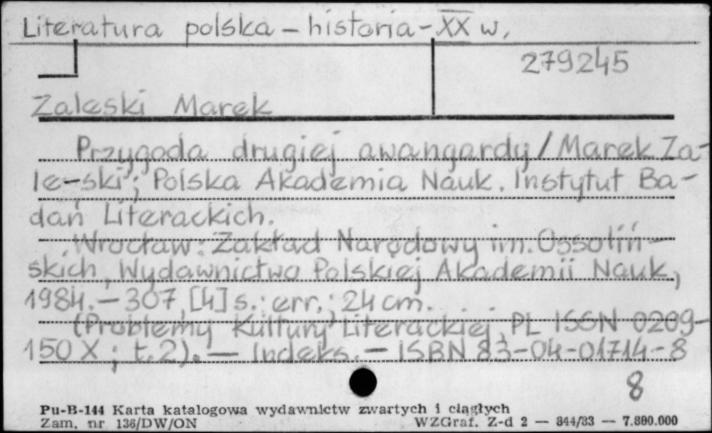 Literatura polska - historia - XX w.
279245
Zaleski Marek
Przygoda drugiej awangardy / Marek Za-
le-ski ; Polska Akademia Nauk. Instytut Ba-
dań Literackich.
Wrocław : Zakład Narodowy im. Ossoliń-
skich, Wydawnictwo Polskiej Akademii Nauk,
1984. - 307, [4] s. : err. ; 24 cm.
(Problemy Kultury Literackiej, PL ISSN 0209-
150X ; t. 2). - Indeks. - ISBN 83-04-01714-8
8
Pu-B-144 Karta katalogowa wydawnictw zwartych i ciągłych
Zam. nr 136/DW/ON WZGraf. Z-d 2 — 344/83 — 7.800.000